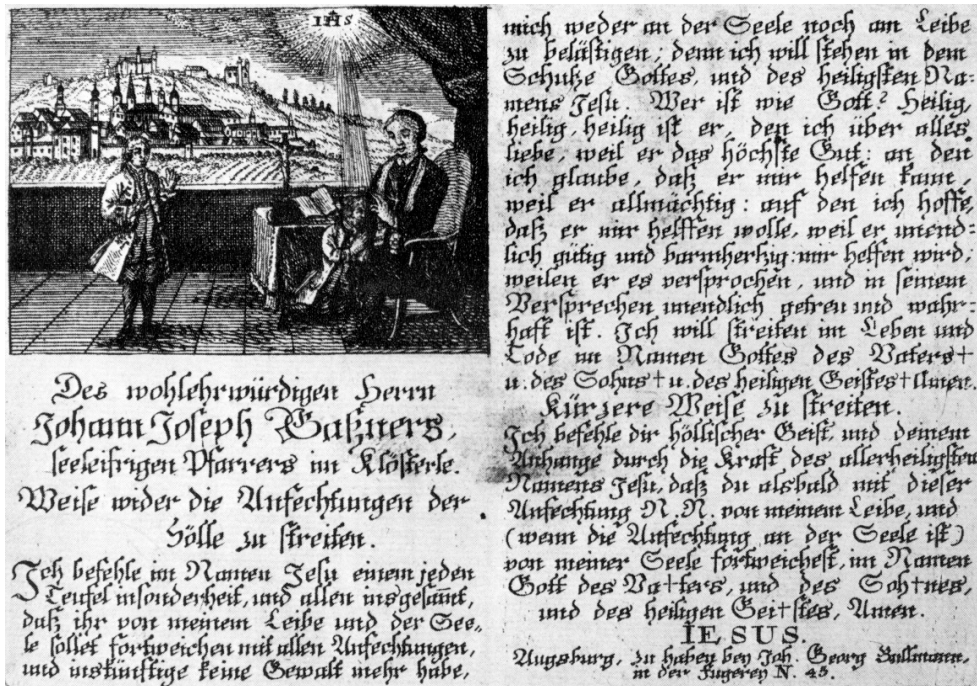 IHS
Des wohlehrwürdigen Herrn
Johann Joseph Gaßners,
seeleifrigen Pfarrers im Klösterle.
Weise wider die Anfechtungen der
Hölle zu streiten.
Ich befehle im Namen Jesu einem jeden
Teufel insonderheit, und allen insgesam̄t,
daß ihr von meinem Leibe und der See„
le sollet fortweichen mit allen Anfechtungen,
und inskünftige keine Gewalt mehr habe,
mich weder an der Seele noch am Leibe
zu belästigen; denn ich will stehen in dem
Schutze Gottes, und des heiligsten Na=
mens Jesu. Wer ist wie Gott? Heilig,
heilig, heilig ist er, den ich über alles
liebe, weil er das höchste Gut: an den
ich glaube, daß er mir helfen kann,
weil er allmächtig: auf den ich hoffe,
daß er mir helffen wolle, weil er unend=
lich gütig und barmhertzig: mir helfen wird,
weilen er es versprochen, und in seinem
Versprechen unendlich getreu und wahr=
haft ist. Ich will streiten im Leben und
Tode im Namen Gottes des Vaters†
u. des Sohns † u. des heiligen Geistes † Amen.
Kürzere Weise zu streiten.
Ich befehle dir höllischer Geist, und deinem
Anhange durch die Kraft des allerheiligsten
Namens Jesu, daß du alsbald mit dieser
Anfechtung N. N. von meinem Leibe, und
(wenn die Anfechtung an der Seele ist)
von meiner Seele fortweichest, im Namen
Gott des Va†ters, und des Soh†nes,
und des heiligen Gei†stes, Amen.
IESUS.
Augsburg, zu haben bey Joh. Georg Bullmann,
in der Fugerey N. 45.